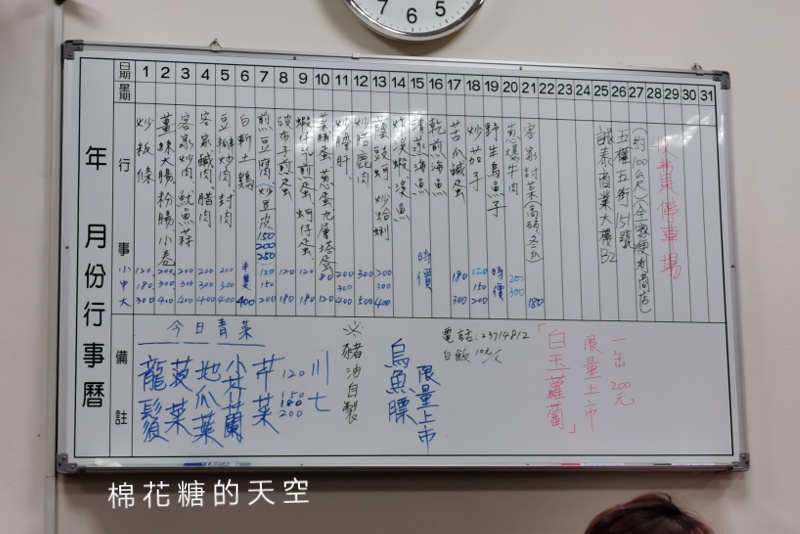 7 6 5
年 月份行事曆
日期 1 2 3 4 5 6 7 8 9 10 11 12 13 14 15 16 17 18 19 20 21 22 23 24 25 26 27 28 29 30 31
星期
行事
小 中 大
炒粄條 120 180 300
薑絲大腸 粉腸、小卷 200 300 400
客家炒肉 魷魚蒜 200 300 400
客家鹹肉、腊肉 200 300 400
豆瓣炒肉、封肉 200 300 400
白斬土雞 半隻 400
煎豆腐 炒豆皮 150 200 250 120 150 200
破布子煎蛋 120 180
蝦仔煎蛋 蚵仔蛋 120 180
菜脯蛋 蔥蛋 九層塔蛋 80 120
炒膽肝 200 300 400
炒腊鹿肉 300 500
蔭豉蚵、炒蛤蜊 200 300 400
炸溪蝦 溪魚
清蒸海魚
乾煎海魚 時價
苦瓜鹹蛋 180 300
炒茄子 120 150 200
野生烏魚子 時價
蔥爆牛肉 200 300
客家封菜(高麗、冬瓜) 180
誠泰商業大樓B2
五權五街151號
(約100公尺)(全家便利商店)
收費停車場
備註
今日青菜
龍鬚
菠菜
地瓜葉
芥蘭
芹菜
120 150 180 200
川七
※豬油自製
烏魚膘
限量上市
電話:23714812
白飯10元/人
「白玉蘿蔔」
限量上市
一缶 200元
棉花糖的天空